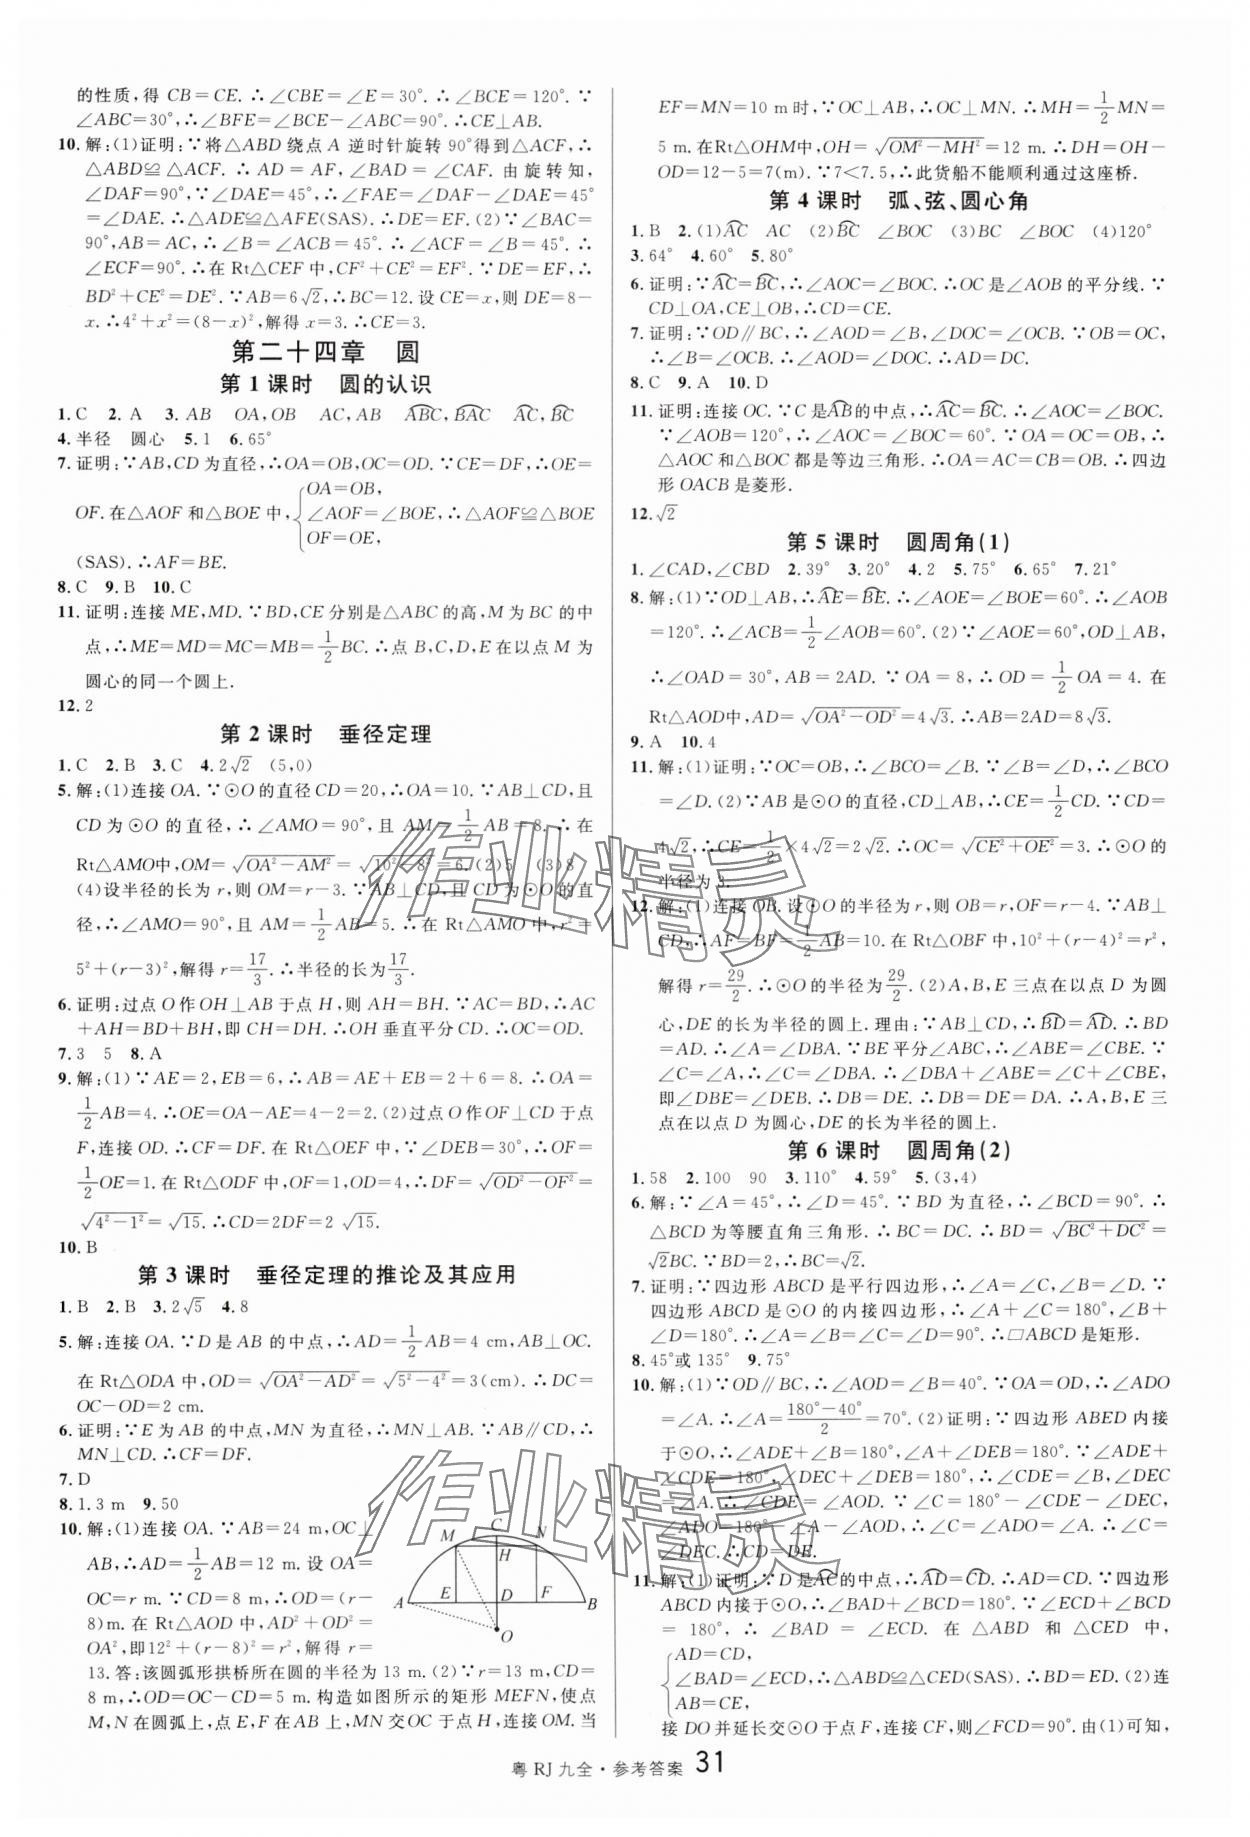 的性质,得 CB=CE.∴∠CBE=∠E=30°.∴∠BCE=120°.∵
∠ABC=30°,∴∠BFE=∠BCE-∠ABC=90°.∴CE⊥AB.
10.解:(1)证明:∵将△ABD 绕点 A 逆时针旋转 90°得到△ACF,∴
△ABD≌△ACF.∴AD=AF,∠BAD=∠CAF.由旋转知,
∠DAF=90°,∵∠DAE=45°,∴∠FAE=∠DAF-∠DAE=45°
=∠DAE.∴△ADE≌△AFE(SAS).∴DE=EF.(2)∵∠BAC=
90°,AB=AC,∴∠B=∠ACB=45°.∴∠ACF=∠B=45°.∴
∠ECF=90°.∴在 Rt△CEF 中,CF²+CE²=EF².∵DE=EF,∴
BD²+CE²=DE².∵AB=6√2,∴BC=12.设 CE=x,则 DE=8-
x.∴4²+x²=(8-x)²,解得 x=3.∴CE=3.
第二十四章 圆
第 1 课时 圆的认识
1.C 2.A 3.AB OA,OB AC,AB ABC,BAC AC,BC
4.半径 圆心 5.1 6.65°
7.证明:∵AB,CD 为直径,∴OA=OB,OC=OD.∵CE=DF,∴OE=
OF.在△AOF 和△BOE 中,{OA=OB,∠AOF=∠BOE,OF=OE,∴△AOF≌△BOE
(SAS).∴AF=BE.
8.C 9.B 10.C
11.证明:连接 ME,MD.∵BD,CE 分别是△ABC 的高,M 为 BC 的中
点,∴ME=MD=MC=MB=1/2BC.∴点 B,C,D,E 在以点 M 为
圆心的同一个圆上.
12.2
第 2 课时 垂径定理
1.C 2.B 3.C 4.2√2 (5,0)
5.解:(1)连接 OA.∵⊙O 的直径 CD=20,∴OA=10.∵AB⊥CD,且
CD 为⊙O 的直径,∴∠AMO=90°,且 AM=1/2AB=8.∴在
Rt△AMO中,OM=√(OA²-AM²)=√(10²-8²)=6.(2)5 (3)8
(4)设半径的长为 r,则 OM=r-3.∵AB⊥CD,且 CD 为⊙O 的直
径,∴∠AMO=90°,且 AM=1/2AB=5.∴在 Rt△AMO 中,r²=
5²+(r-3)²,解得 r=17/3.∴半径的长为17/3.
6.证明:过点 O 作 OH⊥AB 于点 H,则 AH=BH.∵AC=BD,∴AC
+AH=BD+BH,即 CH=DH.∴OH 垂直平分 CD.∴OC=OD.
7.3 5 8.A
9.解:(1)∵AE=2,EB=6,∴AB=AE+EB=2+6=8.∴OA=
1/2AB=4.∴OE=OA-AE=4-2=2.(2)过点 O 作 OF⊥CD 于点
F,连接 OD.∴CF=DF.在 Rt△OEF 中,∵∠DEB=30°,∴OF=
1/2OE=1.在 Rt△ODF 中,OF=1,OD=4,∴DF=√(OD²-OF²)=
√(4²-1²)=√15.∴CD=2DF=2√15.
10.B
第 3 课时 垂径定理的推论及其应用
1.B 2.B 3.2√5 4.8
5.解:连接 OA.∵D 是 AB 的中点,∴AD=1/2AB=4 cm,AB⊥OC.
在 Rt△ODA 中,OD=√(OA²-AD²)=√(5²-4²)=3(cm).∴DC=
OC-OD=2 cm.
6.证明:∵E 为 AB 的中点,MN 为直径,∴MN⊥AB.∵AB∥CD,∴
MN⊥CD.∴CF=DF.
7.D
8.1.3 m 9.50
10.解:(1)连接 OA.∵AB=24 m,OC⊥
AB,∴AD=1/2AB=12 m.设 OA=
OC=r m.∵CD=8 m,∴OD=(r-
8)m.在 Rt△AOD 中,AD²+OD²=
OA²,即12²+(r-8)²=r²,解得 r=
M C N
H
A E D F B
O
13.答:该圆弧形拱桥所在圆的半径为 13 m.(2)∵r=13 m,CD=
8 m,∴OD=OC-CD=5 m.构造如图所示的矩形 MEFN,使点
M,N 在圆弧上,点 E,F 在 AB 上,MN 交OC 于点 H,连接 OM.当
EF=MN=10 m 时,∵OC⊥AB,∴OC⊥MN.∴MH=1/2MN=
5 m.在Rt△OHM中,OH=√(OM²-MH²)=12 m.∴DH=OH-
OD=12-5=7(m).∵7<7.5,∴此货船不能顺利通过这座桥.
第 4 课时 弧、弦、圆心角
1.B 2.(1)AC AC (2)BC ∠BOC (3)BC ∠BOC (4)120°
3.64° 4.60° 5.80°
6.证明:∵AC=BC,∴∠AOC=∠BOC.∴OC 是∠AOB 的平分线.∵
CD⊥OA,CE⊥OB,∴CD=CE.
7.证明:∵OD∥BC,∴∠AOD=∠B,∠DOC=∠OCB.∵OB=OC,
∴∠B=∠OCB.∴∠AOD=∠DOC.∴AD=DC.
8.C 9.A 10.D
11.证明:连接 OC.∵C 是AB的中点,∴AC=BC.∴∠AOC=∠BOC.
∵∠AOB=120°,∴∠AOC=∠BOC=60°.∵OA=OC=OB,∴
△AOC 和△BOC 都是等边三角形.∴OA=AC=CB=OB.∴四边
形 OACB 是菱形.
12.√2
第 5 课时 圆周角(1)
1.∠CAD,∠CBD 2.39° 3.20° 4.2 5.75° 6.65° 7.21°
8.解:(1)∵OD⊥AB,∴AE=BE.∴∠AOE=∠BOE=60°.∴∠AOB
=120°.∴∠ACB=1/2∠AOB=60°.(2)∵∠AOE=60°,OD⊥AB,
∴∠OAD=30°,AB=2AD.∵OA=8,∴OD=1/2OA=4.在
Rt△AOD中,AD=√(OA²-OD²)=4√3.∴AB=2AD=8√3.
9.A 10.4
11.解:(1)证明:∵OC=OB,∴∠BCO=∠B.∵∠B=∠D,∴∠BCO
=∠D.(2)∵AB 是⊙O 的直径,CD⊥AB,∴CE=1/2CD.∵CD=
4√2,∴CE=1/2×4√2=2√2.∴OC=√(CE²+OE²)=3.∴⊙O 的
半径为 3.
12.解:(1)连接 OB.设⊙O 的半径为 r,则 OB=r,OF=r-4.∵AB⊥
CD,∴AF=BF=1/2AB=10.在 Rt△OBF 中,10²+(r-4)²=r²,
解得 r=29/2.∴⊙O 的半径为29/2.(2)A,B,E 三点在以点 D 为圆
心,DE 的长为半径的圆上.理由:∵AB⊥CD,∴BD=AD.∴BD
=AD.∴∠A=∠DBA.∵BE 平分∠ABC,∴∠ABE=∠CBE.∵
∠C=∠A,∴∠C=∠DBA.∴∠DBA+∠ABE=∠C+∠CBE,
即∠DBE=∠DEB.∴DB=DE.∴DB=DE=DA.∴A,B,E 三
点在以点 D 为圆心,DE 的长为半径的圆上.
第 6 课时 圆周角(2)
1.58 2.100 90 3.110° 4.59° 5.(3,4)
6.解:∵∠A=45°,∴∠D=45°.∵BD 为直径,∴∠BCD=90°.∴
△BCD 为等腰直角三角形.∴BC=DC.∴BD=√(BC²+DC²)=
√2BC.∵BD=2,∴BC=√2.
7.证明:∵四边形 ABCD 是平行四边形,∴∠A=∠C,∠B=∠D.∵
四边形 ABCD 是⊙O 的内接四边形,∴∠A+∠C=180°,∠B+
∠D=180°.∴∠A=∠B=∠C=∠D=90°.∴□ABCD 是矩形.
8.45°或 135° 9.75°
10.解:(1)∵OD∥BC,∴∠AOD=∠B=40°.∵OA=OD,∴∠ADO
=∠A.∴∠A=(180°-40°)/2=70°.(2)证明:∵四边形 ABED 内接
于⊙O,∴∠ADE+∠B=180°,∠A+∠DEB=180°.∵∠ADE+
∠CDE=180°,∠DEC+∠DEB=180°,∴∠CDE=∠B,∠DEC
=∠A.∴∠CDE=∠AOD.∵∠C=180°-∠CDE-∠DEC,
∠ADO=180°-∠A-∠AOD,∴∠C=∠ADO=∠A.∴∠C=
∠DEC.∴CD=DE.
11.解:(1)证明:∵D 是AC的中点,∴AD=CD.∴AD=CD.∵四边形
ABCD 内接于⊙O,∴∠BAD+∠BCD=180°.∵∠ECD+∠BCD
=180°,∴∠BAD=∠ECD.在△ABD 和△CED 中,
{AD=CD,
∠BAD=∠ECD,∴△ABD≌△CED(SAS).∴BD=ED.(2)连
AB=CE,
接 DO 并延长交⊙O 于点 F,连接 CF,则∠FCD=90°.由(1)可知,
粤 RJ 九全·参考答案 31
作业精灵
作业精灵